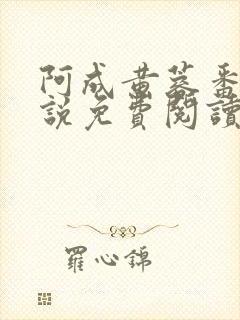 阿成黄蓉番
說免費閱讀
羅心錦